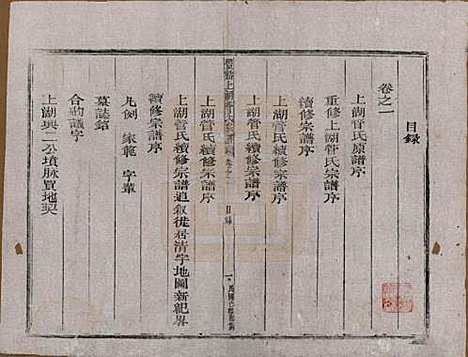 目錄
卷之一
上湖管氏原譜序
重修上湖管氏宗譜序
續修宗譜序
上湖管氏續修宗譜序
上湖管氏續修宗譜序
目錄
一
上湖管氏續修宗譜序
上湖管氏續修宗譜追叙徙居清字地圖新紀畧
續修宗譜序
凡例 家範 字輩
墓誌銘
合約議字
上湖興二公墳脉買地契